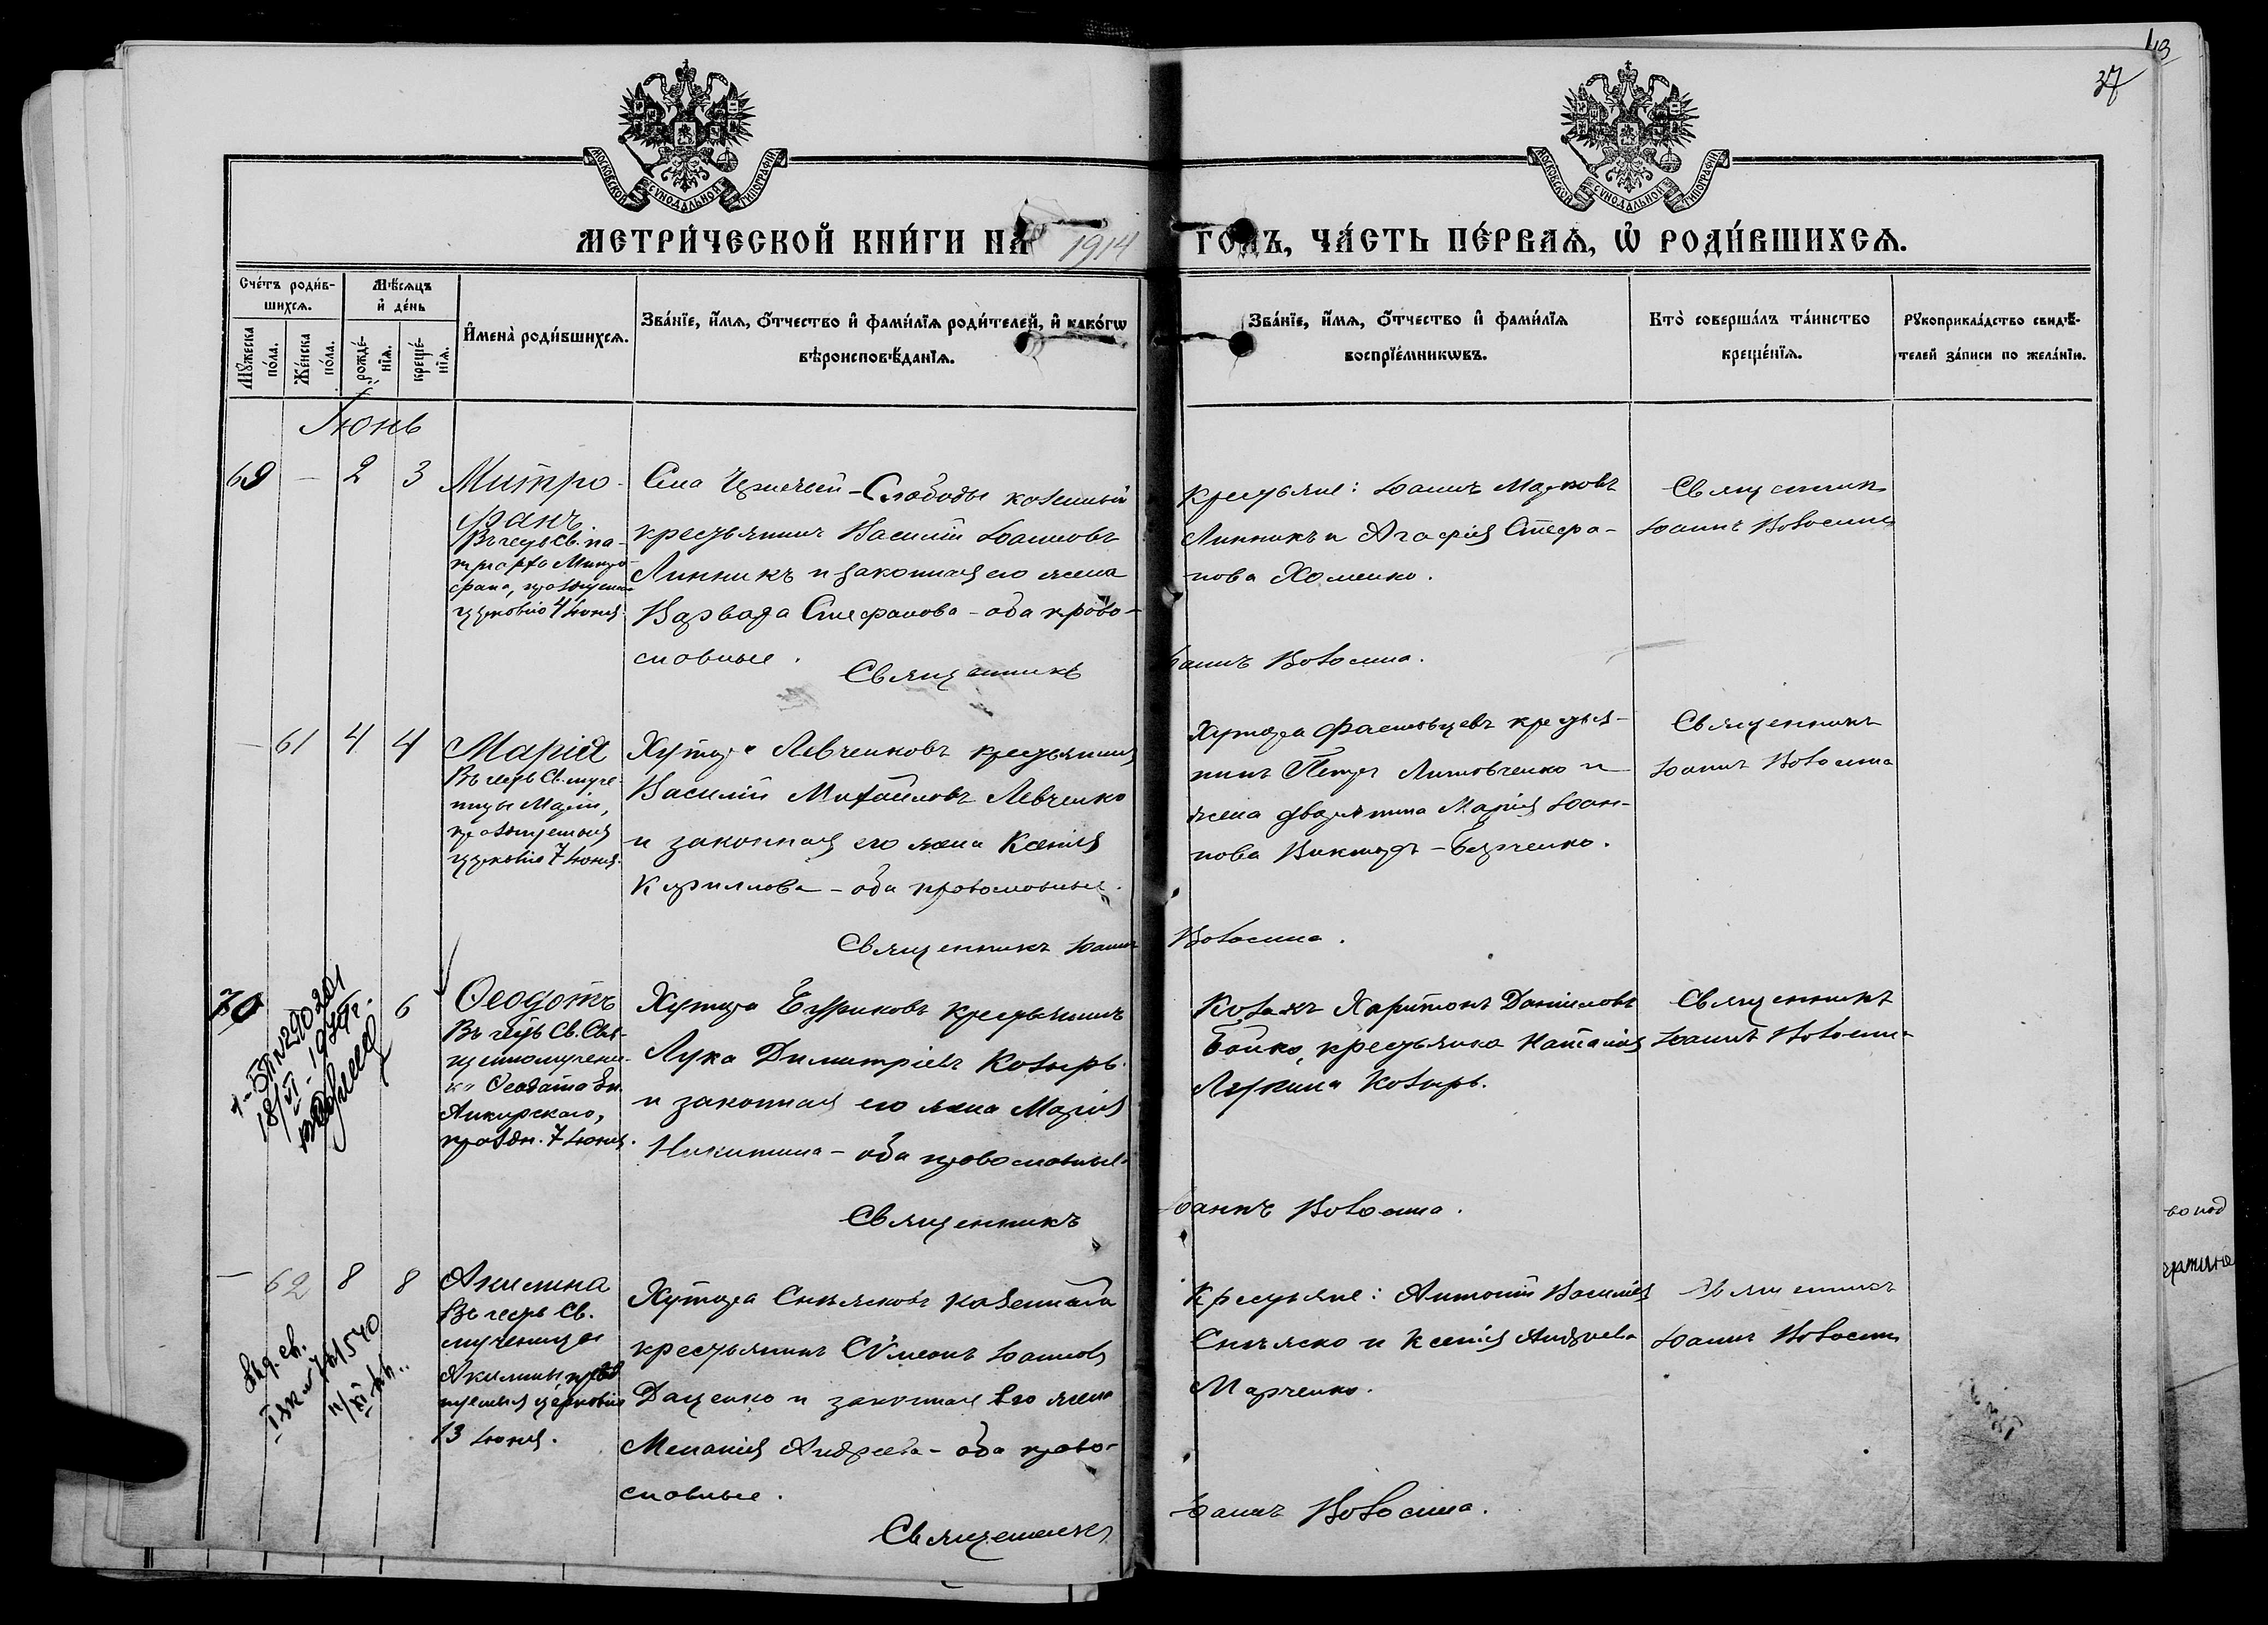 43
37
МОСКОВСКОЙ СѴНОДАЛЬНОЙ ТИПОГРАФІИ
МОСКОВСКОЙ СѴНОДАЛЬНОЙ ТИПОГРАФІИ
МЕТРИ́ЧЕСКОЙ КНИ́ГИ НА 1914 ГОДЪ, ЧА́СТЬ ПЕ́РВАѦ, Ѡ҆ РОДИ́ВШИХСѦ.
Сче́тъ роди́в-
шихсѧ.
Мѣ́сѧцъ
и҆ де́нь
Мꙋ́жеска
по́ла.
Же́нска
по́ла.
рожде́-
нїѧ.
креще́-
нїѧ.
И҆мена̀ роди́вшихсѧ.
Зва́нїе, и҆́мѧ, ѻ҆́тчество и҆ фами́лїѧ роди́телей, и҆ како́гѡ
вѣроисповѣ́данїѧ.
Зва́нїе, и҆́мѧ, ѻ҆́тчество и҆ фами́лїѧ
воспрїе́мникѡвъ.
Кто̀ соверша́лъ та́инство
креще́нїѧ.
Рꙋкоприкла́дство свидѣ́-
телей за́писи по жела́нїю.
Іюнь
69 — 2 3
Митро-
фанъ.
Въ честь Св. па-
тріарха Митро-
фана, празднуемаго
церковію 4 Іюня.
Слободы казенный
крестьянинъ Василій Іоанновъ
Линникъ и законная его жена
Варвара Стефанова – оба право-
славные.
Священникъ
Крестьяне: Іоаннъ Марковъ
Линникъ и Агафія Стефа-
нова Хоменко.
Іоаннъ Волосина.
Священникъ
Іоаннъ Волосина
— 61 4 4
Марія
Въ честь Св. муче-
ницы Маріи,
празднуемыя
церковію 7 Іюня.
Хутора Левченковъ крестьянинъ
Василій Михайловъ Левченко
и законная его жена Ксенія
Кириллова – оба православные.
Священникъ Іоаннъ
Хутора крестья-
нинъ Петръ Литовченко и
жена дворянина Марія Іоан-
нова
Волосина.
Священникъ
Іоаннъ Волосина
70 6
Ѳеодотъ
Въ честь Св. Свя-
щенномучени-
ка Ѳеодота Еп.
Анкирскаго,
праздн. 7 Іюня.
Хутора крестьянинъ
Лука Димитріевъ Козырь
и законная его жена Марія
Никитина – оба православные.
Священникъ
Козакъ Харитонъ Даніиловъ
Бойко, крестьянка Наталія
Лукина Козырь.
Іоаннъ Волосина.
Священникъ
Іоаннъ Волосина
18/VI
— 62 8 8
Акилина
Въ честь Св.
мученицы
Акилины празд
нуемыя церковію
13 Іюня.
Хутора казенный
крестьянинъ Сѵмеонъ Іоанновъ
Даценко и законная его жена
Меланія Андреева – оба право-
славные.
Священникъ
Крестьяне: Антоній Василіевъ
и Ксенія Андреева
Марченко.
Іоаннъ Волосина.
Священникъ
Іоаннъ Волосина